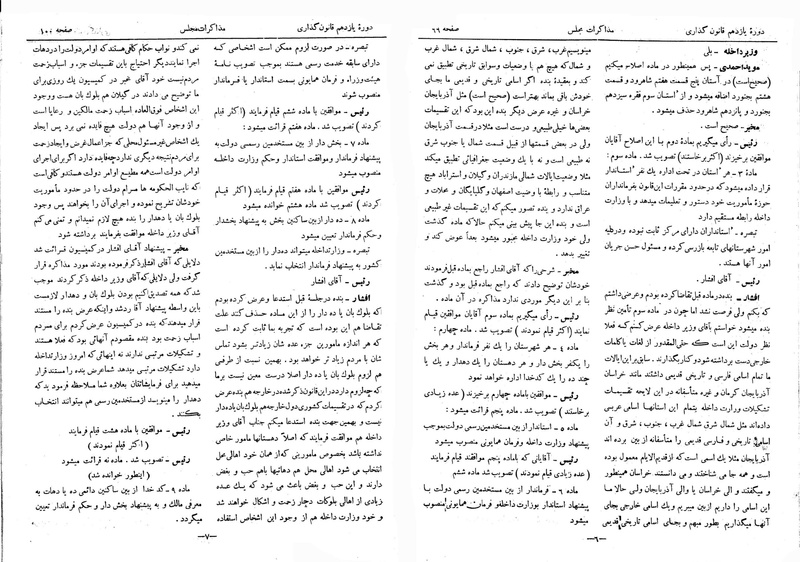 دورهٔ یازدهم قانون گذاری
مذاکرات مجلس
صفحه ٦٦
وزیر داخله - بلی
مؤید احمدی - پس همینطور در ماده اصلاح میکنیم
(صحیح است) در آستان پنج قسمت هفتم شاهرود و قسمت
هشتم بجنورد اضافه میشود و از استان سوم فقره سیزدهم
بجنورد و پانزدهم شاهرود حذف میشود.
مخبر - صحیح است.
رئیس - رأی میگیریم بمادهٔ دوم با این اصلاح آقایان
موافقین برخیزند (اکثر برخاستند) تصویب شد. ماده سوم:
مادهٔ ۳ - هر استان در تحت اداره یک نفر استاندار
قرار داده میشود که در حدود مقررات این قانون بفرمانداران
حوزهٔ مأموریت خود دستور و تعلیمات میدهد و با وزارت
داخله رابطه مستقیم دارد
تبصره - استانداران دارای مرکز ثابت نبوده و درطیه
امور شهرستانهای تابعه بازرسی کرده و مسئول حسن جریان
امور آنها هستند.
رئیس - آقای افشار.
افشار - بنده در ماده قبل تقاضا کرده بودم و عرضی داشتم
که بکنم ولی فرصت نشد اما چون در ماده سوم تأمین نظر
بنده میشود خواستم بآقای وزیر داخله عرض کنم که فعلا
نظر دولت این است که حتی المقدور از لغات یا کلمات
خارجی دست برداشته شود و کنار بگذارند. سابق بر این ایالات
ما تمام اسامی فارسی و تاریخی قدیمی داشتند ماند خراسان
آذربایجان کرمان و غیره متأسفانه در این لایحه تقسیمات
تشکیلات وزارت داخله بتمام این استانها اسامی عربی
داده اند مثل شمال شرق شمال غرب، جنوب، شرق و آن
اسامی تاریخی و فارسی قدیمی را متأسفانه از بین برده اند
آذربایجان مثلا یک اسمی است که از قدیم الایام معمول بوده
است و همه جا می شناختند و می دانستند خراسان همینطور
و میگفتند و الی خراسان یا والی آذربایجان ولی حالا ما
این اسامی را داریم از بین میبریم و یک اسامی خارجی بجای
آنها میگذاریم بطور مبهم و بجای اسامی تاریخی قدیمی
مینویسیم غرب، شرق، جنوب، شمال شرق، شمال غرب
و شمال که هیچ هم با وضعیات و سوابق تاریخی تطبیق نمی
کند و بعقیدهٔ بنده اگر اسامی تاریخی و قدیمی ما بجای
خودش باقی بماند بهتر است (صحیح است) مثل آذربایجان
خراسان و غیره عرض دیگر بنده این بود که این تقسیمات
بعضی ها خیلی طبیعی و درست است مثلا در قسمت آذربایجان
ولی در بعضی قسمتها از قبیل قسمت شمال یا جنوب شرق
نه طبیعی است و نه با یک وضعیت جغرافیائی تطبیق میکند
مثلا وضعیت ایالات شمالی مازندران و گیلان و استراباد هیچ
متناسب و رابطهٔ با وضعیت اصفهان و گلپایگان و محلات و
عراق ندارد و بنده تصور میکنم که این تقسیمات غیر طبیعی
است و بنده این جا پیش بینی میکنم حالا که ماده گذشت
ولی خود وزارت داخله مجبور میشود بعداً عوض کند و
تغییر بدهد.
مخبر - شرحی را که آقای افشار راجع بماده قبل فرمودند
خودشان توضیح دادند که راجع بماده قبل بود و گذشت
بنا بر این دیگر موردی ندارد مذاکره در آن ماده.
رئیس - رأی میگیریم بماده سوم آقایان موافقین قیام
نمایند (اکثر قیام نمودند) تصویب شد. ماده چهارم:
ماده ٤ - هر شهرستان را یک نفر فرماندار و هر بخش
را یکنفر بخش دار و هر دهستان را یک دهدار و یک یا
چند ده را یک کدخدا اداره خواهد نمود
رئیس - موافقین باماده چهارم برخیزند (عده زیادی
برخاستند) تصویب شد. ماده پنجم قرائت میشود:
ماده ٥ - استاندار از بین مستخدمین رسمی دولت بموجب
پیشنهاد وزارت داخله و فرمان همایونی منصوب میشود
رئیس - آقایانی که باماده پنجم موافقند قیام فرمایند
(عده زیادی قیام نمودند) تصویب شد ماده ششم
ماده ٦ - فرماندار از بین مستخدمین رسمی دولت با
پیشنهاد استاندار بوزارت داخله و فرمان همایونی منصوب
میشود
-٦-
دورهٔ یازدهم قانون گذاری
مذاکرات مجلس
صفحه ١٠٠
تبصره - در صورت لزوم ممکن است اشخاصی که
دارای سابقه خدمت رسمی هستند بموجب تصویب نامهٔ
هیئت وزراء و فرمان همایونی سمت استاندار یا فرماندار
منصوب شوند
رئیس - موافقین با ماده ششم قیام فرمایند (اکثر قیام
کردند) تصویب شد. ماده هفتم قرائت میشود:
ماده ۷ - بخش دار از بین مستخدمین رسمی دولت به
پیشنهاد فرماندار و موافقت استاندار و حکم وزارت داخله
منصوب میشود
رئیس - موافقین باماده هفتم قیام فرمایند (اکثر قیام
نمودند) تصویب شد ماده هشتم خوانده میشود
ماده ۸ - دهدار از بین ساکنین بخش به پیشنهاد بخشدار
و حکم فرماندار تعیین میشود
تبصره - وزارت داخله میتواند ده دار را از بین مستخدمین
کشور به پیشنهاد فرماندار انتخاب نماید.
رئیس - آقای افشار
افشار - بنده در جلسهٔ قبل استدعا و عرض کرده بودم
که بلوک بان یا ده دار را از این ماده حذف کنند علت
تقاضا هم این بوده است که تجربه بما ثابت کرده است
که هر اندازه مأمورین جزء عده شان زیادتر بشود تماس
شان با مردم زیاد تر خواهد بود. بهمین نسبت از طرفی
هم لزوم بلوک بان یا ده دار اصلا درست معین نیست برما
که چه لزوم دارد در این قانون ذکر شده در خارجه هم بنده عرض
کردم که در تقسیمات کشوری دول خارجه هم بلوک بان یا ده دار
نیست و بهمین جهت بنده استدعا میکنم جناب آقای وزیر
داخله هم موافقت فرمایند که اصلاً دهستانها مأمور خاصی
نداشته باشد بخصوص مأمورینی که از همان خود اهالی محل
انتخاب می شود اهالی محل هم دهاتیها باهم حب و بغض
دارند و این حب و بغض باعث می شود که یک عده
زیادی از اهالی بلوکات دچار زحمت و اشکال خواهند شد
و خود وزارت داخله هم از وجود این اشخاص استفاده
نمی کند و نواب حکام کافی هستند که اوامر دولت را دردهات
اجرا نمایند دیگر احتیاج باین تقسیمات جزء و اسباب زحمت
مردم نیست خود آقای مخبر در کمیسیون یک روزی برای
ما توضیح می دادند در گیلان هم بلوک بان هست و وجود
این اشخاص فوق العاده اسباب زحمت مالکین و رعایا است
و از وجود آنها هم دولت هیچ فایده نمی برد پس ایجاد
یک اشخاص غیر مسئول محلی که جز اعمال غرض و ایجاد زحمت
برای مردم نتیجه دیگری ندارد چه فایده دارد اگر برای اجرای
اوامر دولت است همه مطیع اوامر دولتند و کافی است
که نایب الحکومه ها مرام دولت را در حدود مأموریت
خودشان تشریح نماده و اجرای آن را بخواهند پس وجود
بلوک بان یا دهدار را بنده هیچ لازم نمیدانم و تمنی می کنم
آقای وزیر داخله موافقت بفرمایند برداشته شود
مخبر - پیشنهاد آقای افشار در کمیسیون قرائت شد
دلایلی که آقای افشار ذکر فرموده بودند مورد مذاکره قرار
گرفت ولی دلایلی که آقای وزیر داخله ذکر کردند موجب
شد که همه تصدیق کنیم بودن بلوک بان و دهدار لازمند
باین واسطه پیشنهاد آقا ردشد و اینکه عرض بنده را مستند
قرار میدهند که بنده در کمیسیون عرض کردم برای مردم
اسباب زحمت بود بنده مقصودم آنهائی بود که فعلا هستند
و تشکیلات مرتبی ندارند نه اینهائی که امروز وزارت داخله
دارد تشکیلات مرتبی میدهد شما عرض بنده را مستند قرار
میدهید برای فرمایشاتتان بعلاوه شما ملاحظه فرمود ید که
دهدار را مینویسد از مستخدمین رسمی هم میتوانند انتخاب
بکنند.
رئیس - موافقین با ماده هشت قیام فرمایند
(اکثر قیام نمودند)
رئیس - تصویب شد. ماده نه قرائت میشود
(اینطور خوانده شد)
ماده ٩ - کد خدا از بین ساکنین دائمی ده یا دهات به
معرفی مالک و به پیشنهاد بخش دار و حکم فرماندار تعیین
میگردد.
-٧-